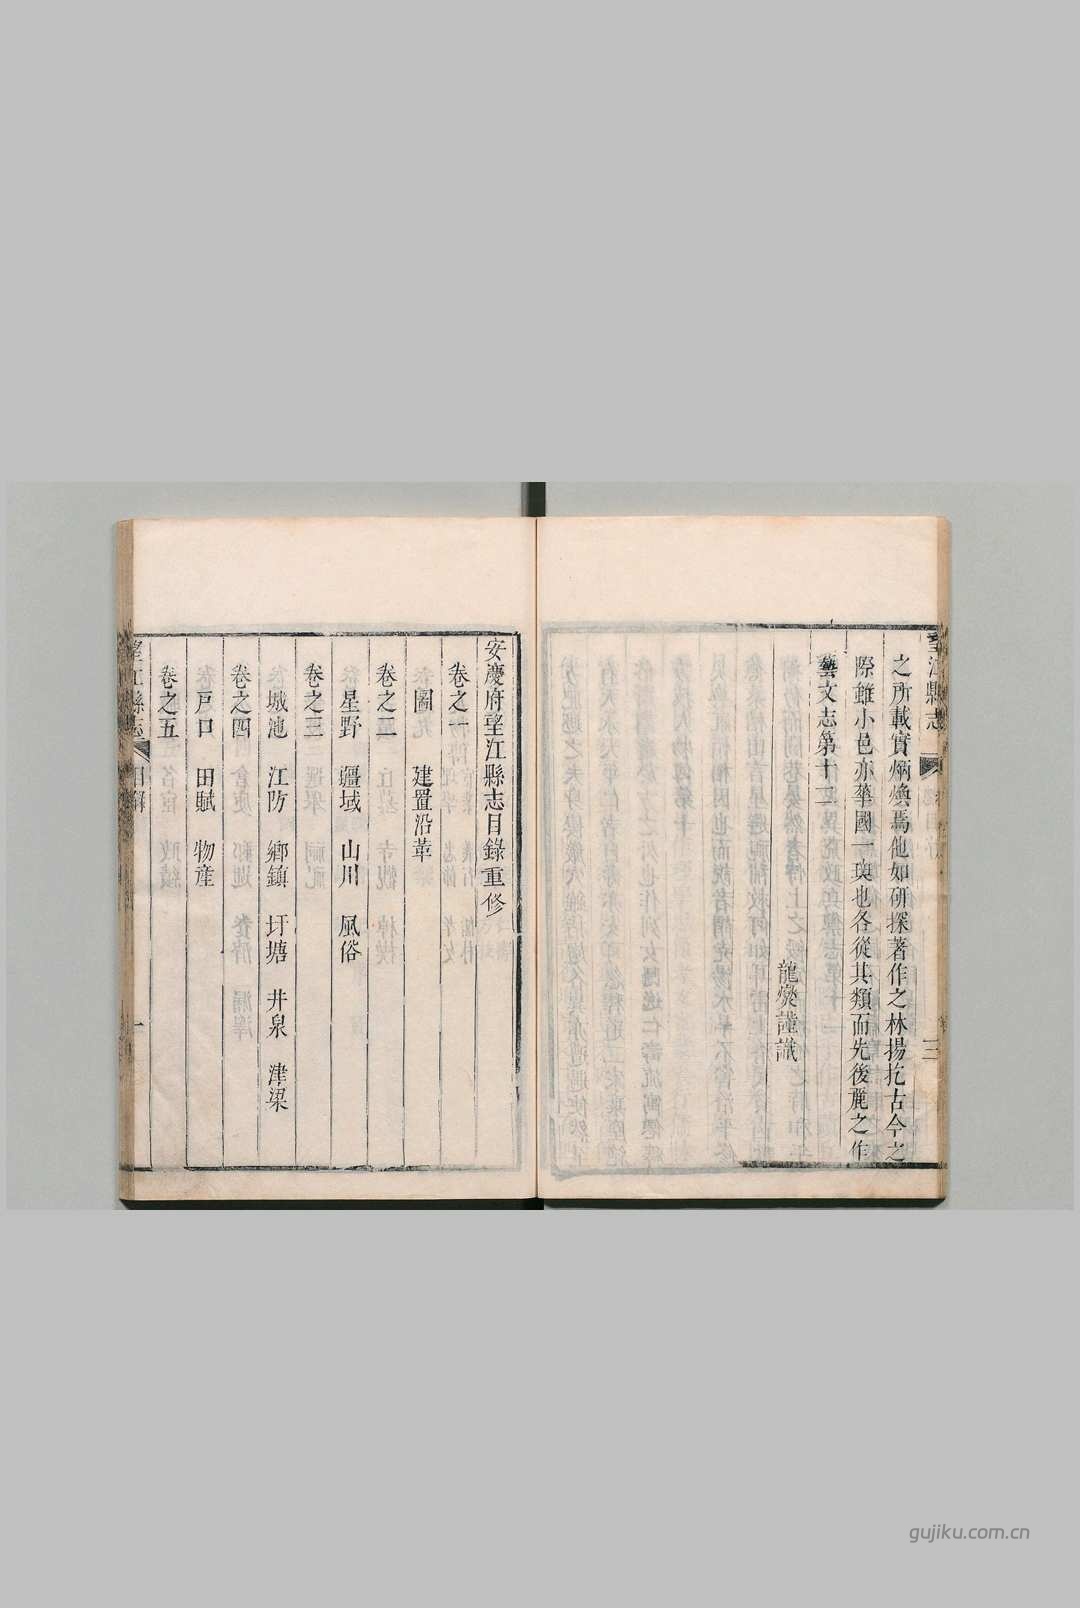 之所載實炳煥焉他如研探著作之林揚扢古今之
際雖小邑亦華國一班也各從其類而先後麗之作
藝文志第十二
龍燮謹識
望江縣志
三
安慶府望江縣志目錄重修
卷之一
圖 建置沿革
卷之二
星野 疆域 山川 風俗
卷之三
城池 江防 鄉鎮 圩塘 井泉 津梁
卷之四
戶口 田賦 物產
卷之五
望江縣志 目錄 一
gujiku.com.cn